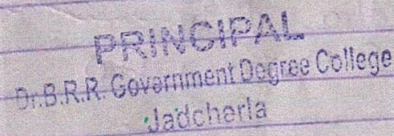 PRINCIPAL
Dr.B.R.R. Government Degree College
Jadcherla